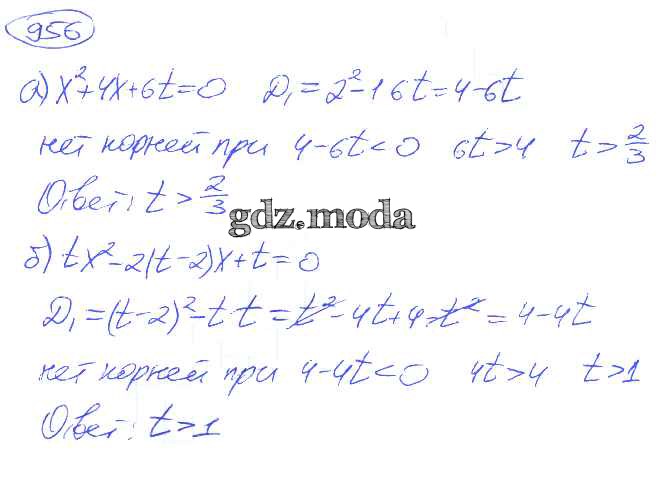 956
а) x²+4x+6t=0 D₁=2²-1·6t=4-6t
нет корней при 4-6t<0 6t>4 t>2/3
Ответ: t>2/3
gdz.moda
б) tx²-2(t-2)x+t=0
D₁=(t-2)²-t·t=t²-4t+4-t²=4-4t
нет корней при 4-4t<0 4t>4 t>1
Ответ: t>1